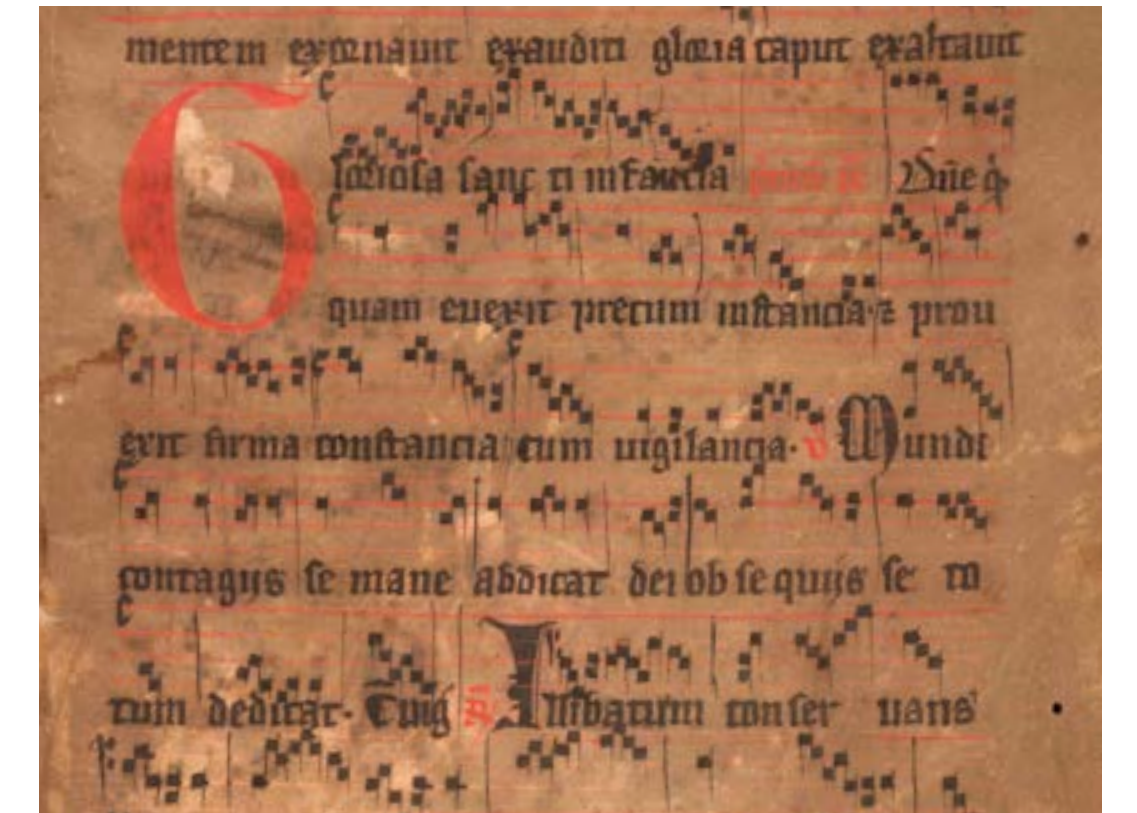 mentem exornauit exaudit gloria caput exaltauit
Gloriosa sanc ti infancia Dñe q̇
quam euexit precum instancia · ⁊ prou
exit firma constancia cum uigilancia · v Mundi
contagijs se mane abdicat dei ob se quijs se to
tum dedicat · Cuig̃ R̃ Illibatum conser uans